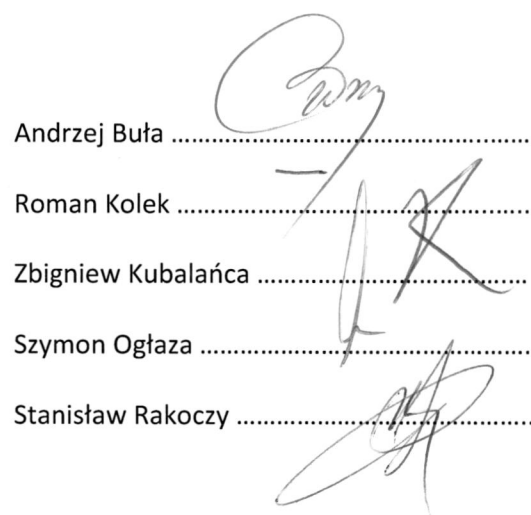 Andrzej Buła ..................................................
Roman Kolek ..................................................
Zbigniew Kubalańca ......................................
Szymon Ogłaza ..............................................
Stanisław Rakoczy .........................................